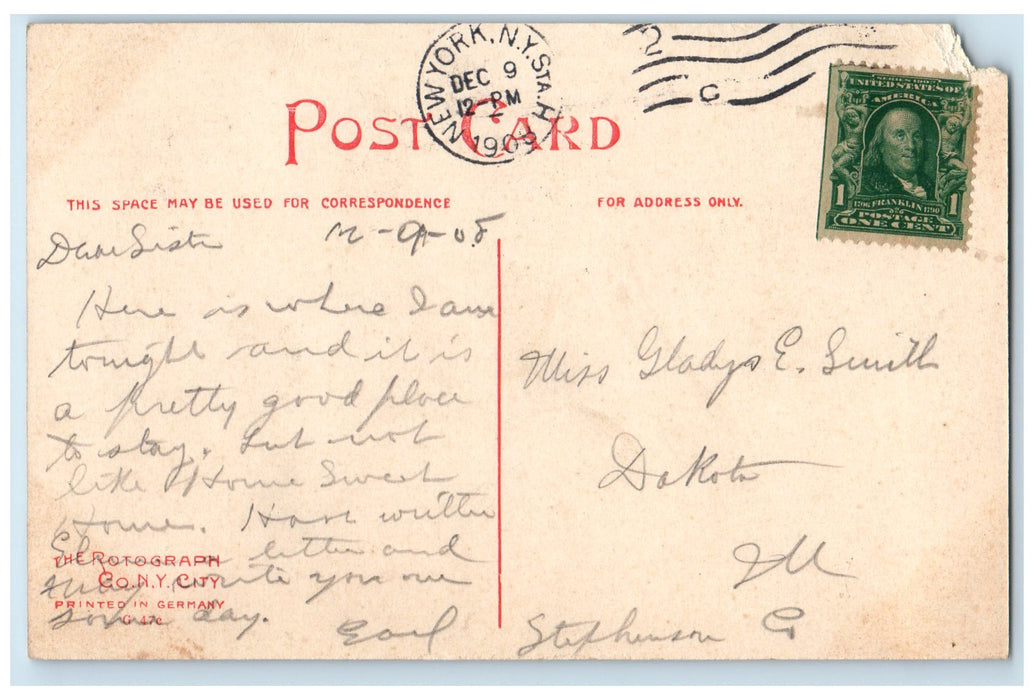 NEW YORK, N.Y. STA. H
DEC 9
12 PM
2
C
POST CARD
SERIES 1902
UNITED STATES OF
AMERICA
1706 FRANKLIN 1790
1 1
POSTAGE
ONE CENT
THIS SPACE MAY BE USED FOR CORRESPONDENCE
FOR ADDRESS ONLY.
12-9-08
Dear Sister
Here is where I am
tonight and it is
a pretty good place
to stay. but not
like Home Sweet
Home. Have written
letter and
may write you one
some day.
Earl
THE ROTOGRAPH
CO. N.Y. CITY
PRINTED IN GERMANY
G 47c
Miss Gladys E. Smith
Dakota
Ill
Stephenson Co